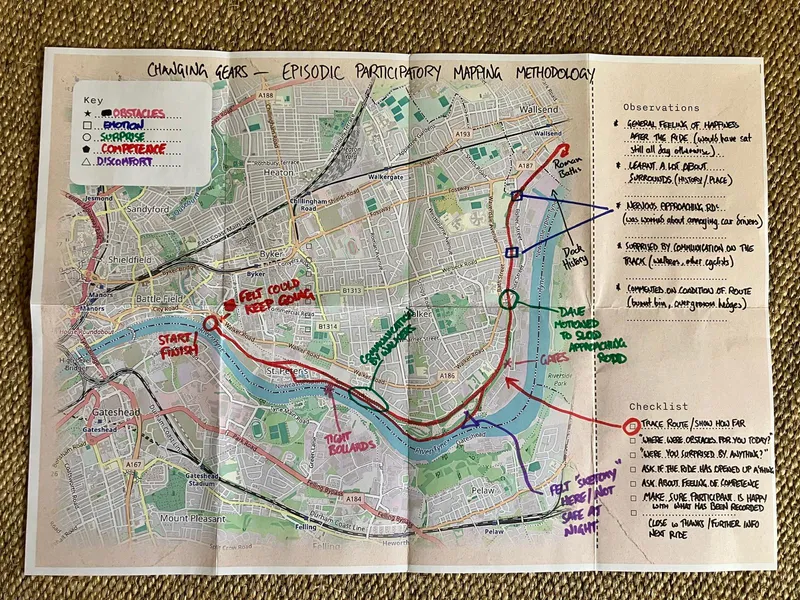 CHANGING GEARS — EPISODIC PARTICIPATORY MAPPING METHODOLOGY
Key
OBSTACLES
EMOTION
SURPRISE
COMPETENCE
DISCOMFORT
A188
A193
Wallsend
Wallsend
A187
Roman
Baths
Heaton
Walkergate
Chillingham
Road
Jesmond
Sandyford
Shieldfield
Byker
Byker
Battle Field
Manors
Manors
City Road
B1313
B1314
Dock
History
FELT COULD
KEEP GOING
START/
FINISH
COMMUNICATION
BY WALKERS
DAVE
MOTIONED
TO SLOW
APPROACHING
ROAD
GATES
Riverside
Park
St. Peter's
A186
Walker Road
TIGHT
BOLLARDS
Gateshead
Gateshead
A167
Gateshead
Stadium
A184
Felling Bypass
Mount Pleasant
Durham Coast Line
Felling
Felling
Heworth
Pelaw
Pelaw
FELT "SKETCHY"
HERE/NOT
SAFE AT
NIGHT
Observations
* GENERAL FEELING OF HAPPINESS
AFTER THE RIDE (would have sat
still all day otherwise).
* LEARNT A LOT ABOUT
SURROUNDS (HISTORY/PLACE)
* NERVOUS APPROACHING RD.
(was worried about annoying car drivers)
* SURPRISED BY COMMUNICATION ON THE
TRACK (walkers, other cyclists)
* COMMENTED ON CONDITION OF ROUTE
(burnt bin, overgrown hedges)
Checklist
TRACE ROUTE/SHOW HOW FAR
"WHERE WERE OBSTACLES FOR YOU TODAY?"
"WERE YOU SURPRISED BY ANYTHING?"
ASK IF THE RIDE HAS OPENED UP ANYTHING
ASK ABOUT FEELING OF COMPETENCE
MAKE SURE PARTICIPANT IS HAPPY
WITH WHAT HAS BEEN RECORDED
CLOSE W THANKS/FURTHER INFO
NEXT RIDE